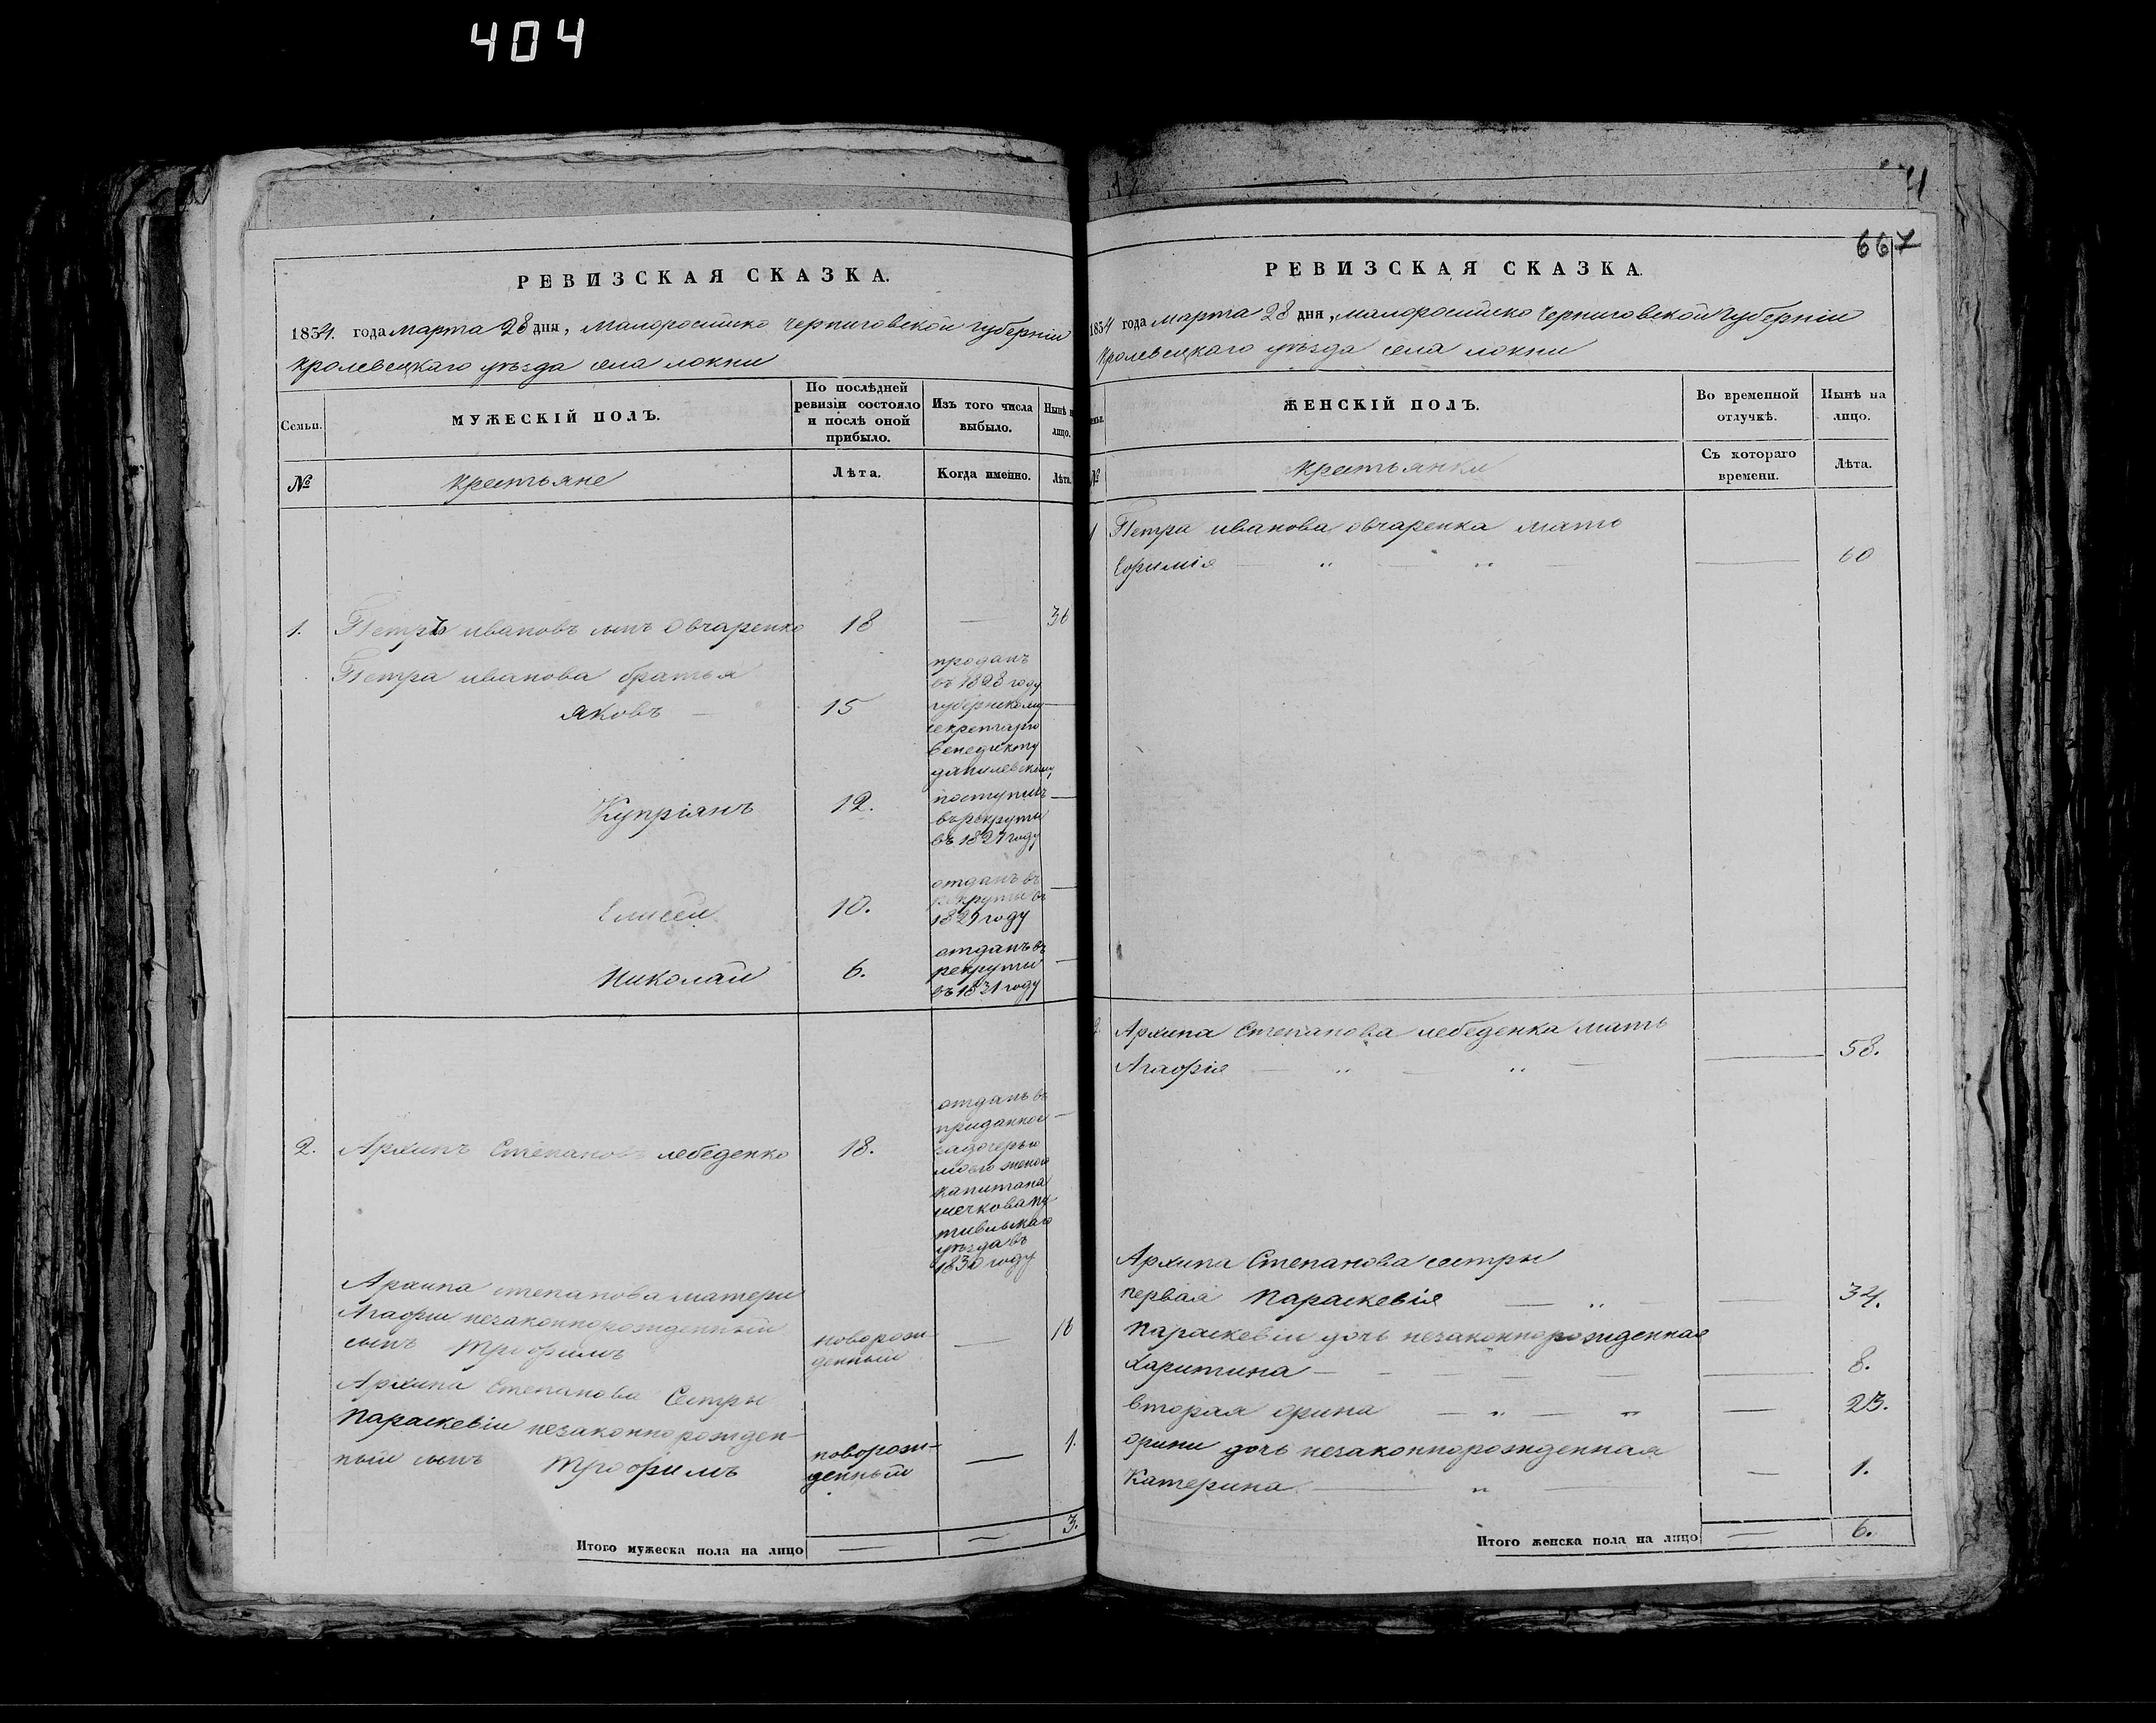 404
РЕВИЗСКАЯ СКАЗКА.
1834. года марта 28 дня, малоросийско Черниговской губерніи
Кролевецкаго уѣзда села локни
Семьи.
МУЖЕСКІЙ ПОЛЪ.
По послѣдней
ревизіи состояло
и послѣ оной
прибыло.
Изъ того числа
выбыло.
Нынѣ н
лицо.
№
крестьяне
Лѣта.
Когда именно.
Лѣта.
1. Петръ ивановъ сынъ Овчаренко 18 — 36
Петра иванова братья
яковъ — 15
проданъ
въ 1828 году
губернскому
секретарю
венедикту
данилевскому
Купріянъ 12.
поступилъ
въ рекруты
въ 1827 году
Елисей 10.
отданъ въ
рекруты въ
1829 году
Николай 6.
отданъ въ
рекруты
въ 1831 году
2. Архипъ Степановъ лебеденко 18.
отданъ въ
приданное
за дочерью
моего
капитана
уѣзда въ
1830 году
Архипа степанова матери
Агафіи незаконнорожденный
сынъ Трофимъ
новорож-
денный
— 16
Архипа Степанова Сестры
Параскевіи незаконнорожден-
ный сынъ Трофимъ
новорож-
денный
— 1.
Итого мужеска пола на лицо — — 3.
4
667
РЕВИЗСКАЯ СКАЗКА.
1834 года марта 28 дня, малоросийско Черниговской Губерніи
Кролевецкаго уѣзда села локни
ЖЕНСКІЙ ПОЛЪ.
Во временной
отлучкѣ.
Нынѣ на
лицо.
№
крестьянки
Съ котораго
времени.
Лѣта.
1 Петра иванова овчаренка мать
Ефимія — „ — „ — 60
2. Архипа Степанова лебеденка мать
Агафія — „ — „ — 58.
Архипа Степанова сестры
первая Параскевія — „ — — 34.
Параскевіи дочь незаконнорожденная
Харитина — — — — — 8.
вторая орина — „ — „ — 23.
орины дочь незаконнорожденная
Катерина — „ — — 1.
Итого женска пола на лицо — 6.